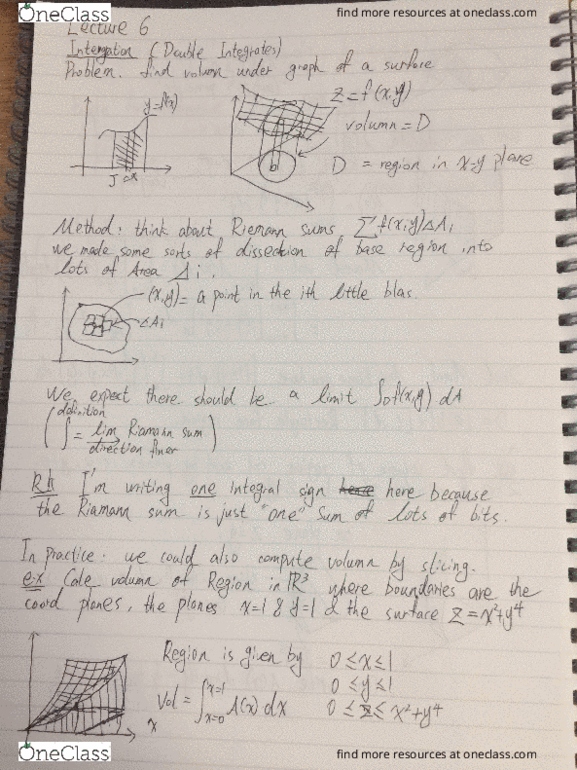 OneClass
find more resources at oneclass.com
Lecture 6
Intergation (Double Integrates)
Problem. find volumn under graph of a surface
y=f(x)
z=f(x,y)
volumn = D
D = region in x-y plane
D
Method: think about Riemann sums, ∑f(x,y)ΔAi
we made some sorts of dissection of base region into
lots of Area Δi.
(x,y)= a point in the ith little
ΔAi
We expect there should be a limit ∫Df(x,y) dA
definition
(∫ = lim Riamann sum)
direction finer
I'm writing one integral sign here here because
the Riamann sum is just "one" sum of lots of bits.
In practice: we could also compute volumn by slicing.
ex Calc volumn of Region in ℝ³ where boundaries are the
coord planes, the planes x=1 & y=1 & the surface z=x²+y⁴
Region is given by 0≤x≤1
0≤y≤1
Vol = ∫x=0x=1 A(x) dx
0≤z≤x²+y⁴
x
OneClass
find more resources at oneclass.com